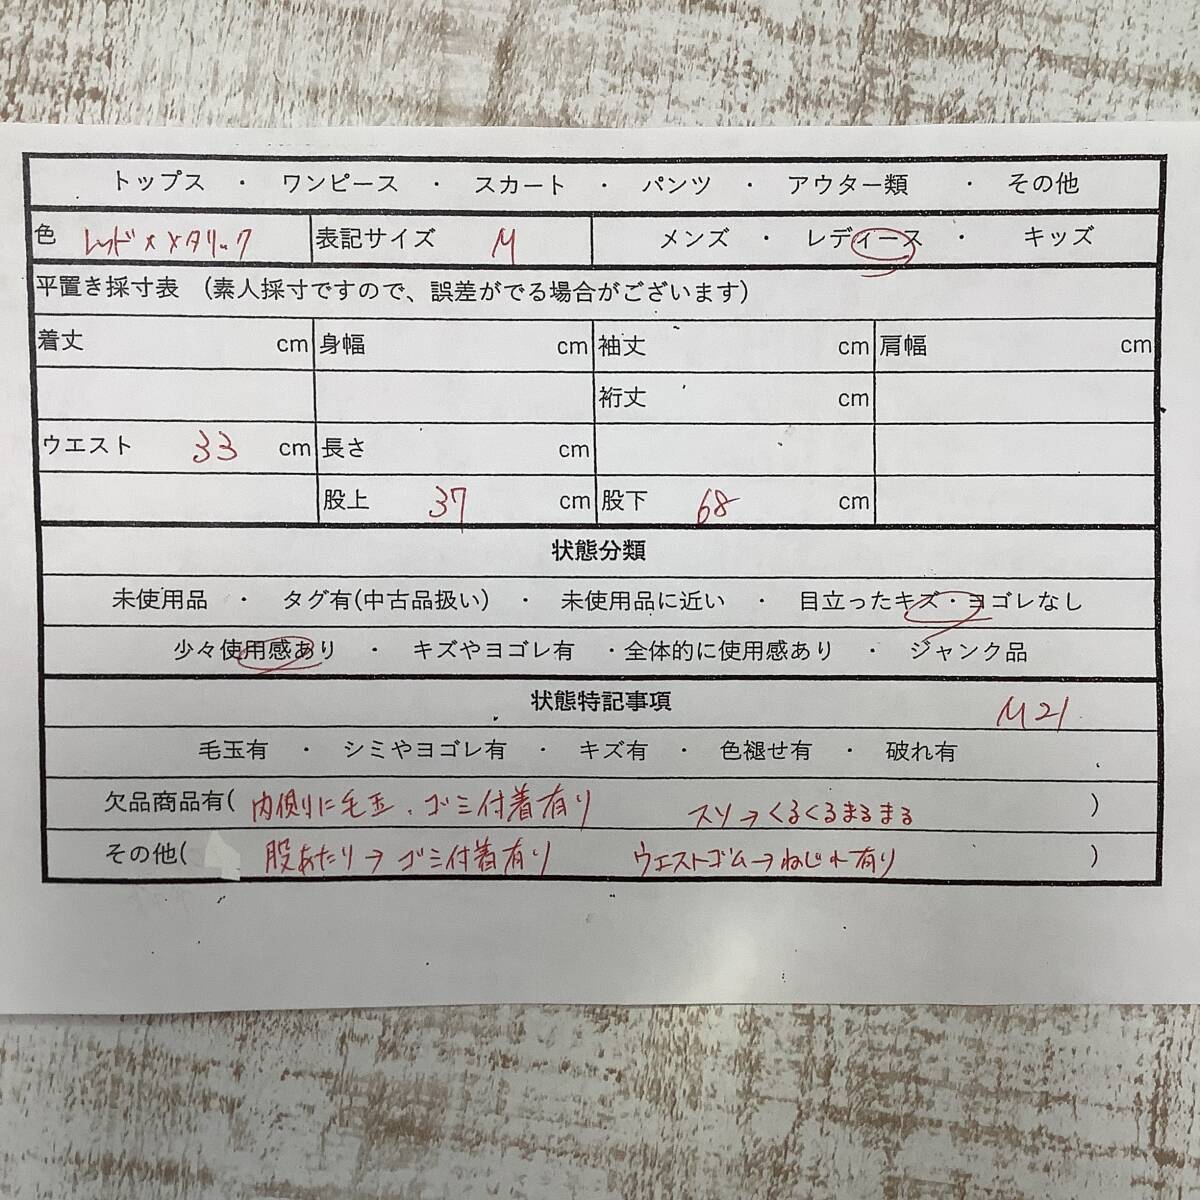 トップス ・ ワンピース ・ スカート ・ パンツ ・ アウター類 ・ その他
色 レッド×メタリック 表記サイズ M メンズ ・ レディース ・ キッズ
平置き採寸表 (素人採寸ですので、誤差がでる場合がございます)
着丈 cm 身幅 cm 袖丈 cm 肩幅 cm
裄丈 cm
ウエスト 33 cm 長さ cm
股上 37 cm 股下 68 cm
状態分類
未使用品 ・ タグ有(中古品扱い) ・ 未使用品に近い ・ 目立ったキズ・ヨゴレなし
少々使用感あり ・ キズやヨゴレ有 ・全体的に使用感あり ・ ジャンク品
状態特記事項 M21
毛玉有 ・ シミやヨゴレ有 ・ キズ有 ・ 色褪せ有 ・ 破れ有
欠品商品有( 内側に毛玉、ゴミ付着有り スソ→くるくるまるまる )
その他( 股あたり→ゴミ付着有り ウエストゴム→ねじれ有り )